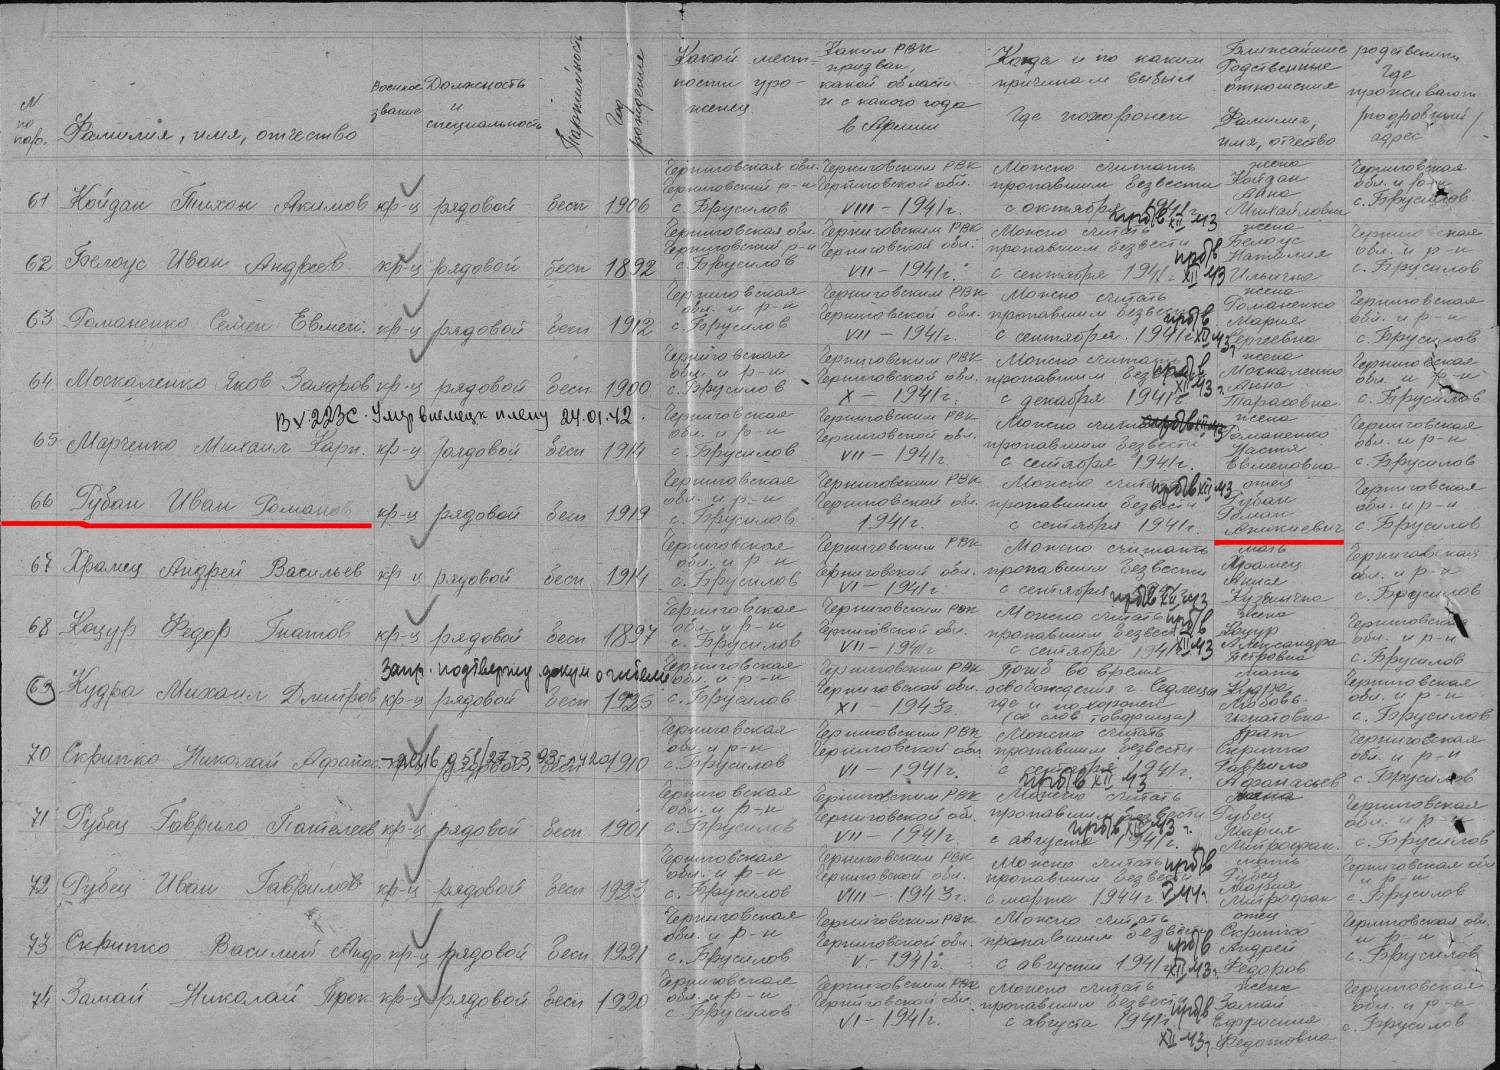 N по пор.
Фамилия, имя, отчество
Военное звание
Должность и специальность
Партийность
Год рождения
Какой местности уроженец
Каким РВК призван, какой области и с какого года в Армии
Когда и по каким причинам выбыл
Где похоронен
Ближайшие родственники
Родственные отношения
Фамилия, имя, отчество
Где проживают
(подробный адрес)
61 Койдан Тихон Акимов кр-ц рядовой бесп 1906
Черниговская обл. Черниговский р-н с. Брусилов
Черниговским РВК Черниговской обл. VIII – 1941г.
Можно считать пропавшим безвести с октября
жена Койдан Анна Михайловна
Черниговская обл. и р-н с. Брусилов
62 Белоус Иван Андреев кр-ц рядовой бесп 1892
Черниговская обл. Черниговский р-н с. Брусилов
Черниговским РВК Черниговской обл. VII – 1941г.
Можно считать пропавшим безвести с сентября 1941г
жена Белоус Наталия Ильична
Черниговская обл. и р-н с. Брусилов
63 Романенко Семен Евмен. кр-ц рядовой бесп 1912
Черниговская обл. и р-н с. Брусилов
Черниговским РВК Черниговской обл. VII – 1941г.
Можно считать пропавшим безвести с сентября. 1941г
жена Романенко Мария Сергеевна
Черниговская обл. и р-н с. Брусилов
64 Москаленко Яков Захаров кр-ц рядовой бесп 1900
Черниговская обл. и р-н с. Брусилов
Черниговским РВК Черниговской обл. X – 1941г.
Можно считать пропавшим с декабря 1941г
жена Москаленко Анна Тарасовна
Черниговская обл. и р-н с. Брусилов
24.01.42.
65 Марченко Михаил Карп. кр-ц рядовой бесп 1914
Черниговская обл. и р-н с. Брусилов
Черниговским РВК Черниговской обл. VII – 1941г
Можно пропавшим безвести с сентября 1941г.
жена Романенко Настя Евменовна
Черниговская обл. и р-н с. Брусилов
66 Рубан Иван Романов кр-ц рядовой бесп 1919
Черниговская обл. и р-н с. Брусилов
Черниговским РВК Черниговской обл. 1941г.
Можно пропавшим безвести с сентября 1941г.
отец Рубан Роман Аникиевич
Черниговская обл. и р-н с. Брусилов
67 Храмец Андрей Васильев кр-ц рядовой бесп 1914
Черниговская обл. и р-н с. Брусилов
Черниговским РВК Черниговской обл. VI – 1941г
Можно считать пропавшим безвести с сентября
мать Храмец Кузьминична
Черниговская обл. и р-н с. Брусилов
68 Коцур Федор Игнатов кр-ц рядовой бесп 1897
Черниговская обл. и р-н с. Брусилов
Черниговским РВК Черниговской обл. VII – 1941г
Можно считать пропавшим с сентября 1941
жена Коцур Александра Петровна
Черниговская обл. и р-н с. Брусилов
69 Кудра Михаил Дмитров кр-ц рядовой бесп 1925
Черниговская обл. и р-н с. Брусилов
Черниговским РВК Черниговской обл. XI – 1943г.
Погиб во время освобождения г. Седлецы где и похоронен (со слов товарища)
мать Кудра Любовь Игнатовна
Черниговская обл. и р-н с. Брусилов
70 Скрипко Николай Афанас. 1910
Черниговская обл. и р-н с. Брусилов
Черниговским РВК Черниговской обл VI – 1941г.
Можно считать пропавшим безвести с сентября 1941г.
брат Скрипко Гаврило Афанасьев
Черниговская обл. и р-н с. Брусилов
71 Рубец Гаврило Пантелеев кр-ц рядовой бесп 1901
Черниговская обл. и р-н с. Брусилов
Черниговским РВК Черниговской обл. VII – 1941г.
Можно считать пропавшим безвести с августа 1941г.
жена Рубец Мария Митрофан.
Черниговская обл. и р-н с. Брусилов
72 Рубец Иван Гаврилов кр-ц рядовой бесп 1923
Черниговская обл. и р-н с. Брусилов
Черниговским РВК Черниговской обл. VIII – 1943г.
Можно считать пропавшим безвести с марта 1944г
мать Рубец Мария Митрофан
Черниговская обл и р-н с. Брусилов
73 Скрипко Василий Андр кр-ц рядовой бесп 1921
Черниговская обл. и р-н с. Брусилов
Черниговским РВК Черниговской обл. V – 1941г.
Можно считать пропавшим безвести с августа 1941
отец Скрипко Андрей Федоров
Черниговская обл. и р-н с. Брусилов
74 Замай Николай Прок кр-ц рядовой бесп 1920
Черниговская обл. и р-н с. Брусилов
Черниговским РВК Черниговской обл. VI – 1941г.
Можно считать пропавшим безвести с августа 1941г
жена Замай Ефросиния Федотовна
Черниговская обл. и р-н с. Брусилов